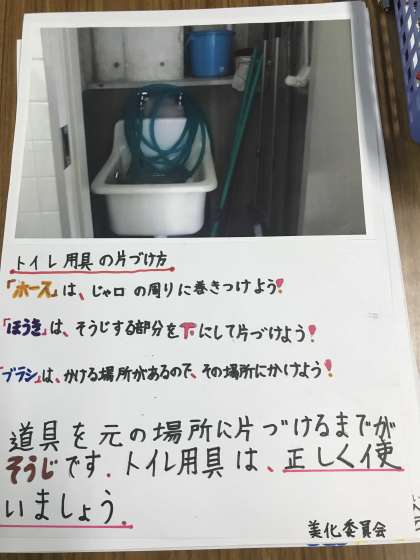 トイレ用具の片づけ方
「ホース」は、じゃ口の周りに巻きつけよう!
「ほうき」は、そうじする部分を下にして片づけよう!
「ブラシ」は、かける場所があるので、その場所にかけよう!
道具を元の場所に片づけるまでが
そうじです。トイレ用具は、正しく使
いましょう。
美化委員会